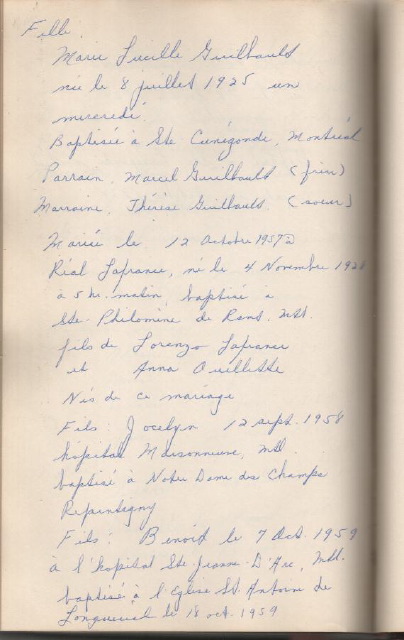 Fille.
Marie Lucille Guilbault
née le 8 juillet 1925 un
mercredi.
Baptisée à Ste Cunégonde, Montréal
Parrain, Marcel Guilbault (frère)
Marraine, Thérèse Guilbault, (soeur)
Mariée le 12 Octobre 1957 à
Réal Lafrance, né le 4 Novembre
à 5 hr. matin, baptisé à
Ste-Philomène de Rosm. Mtl.
fils de Lorenzo Lafrance
et Anna Ouillette
Nés de ce mariage
Fils: Jocelyn 12 sept. 1958
hôpital Maisonneuve, Mtl.
baptisé à Notre Dame des Champs
Repentigny
Fils: Benoit le 7 Oct. 1959
à l'hôpital Ste Jeanne D'Arc, Mtl.
baptisé à l'Eglise St. Antoine de
Longueuil le 18 oct. 1959